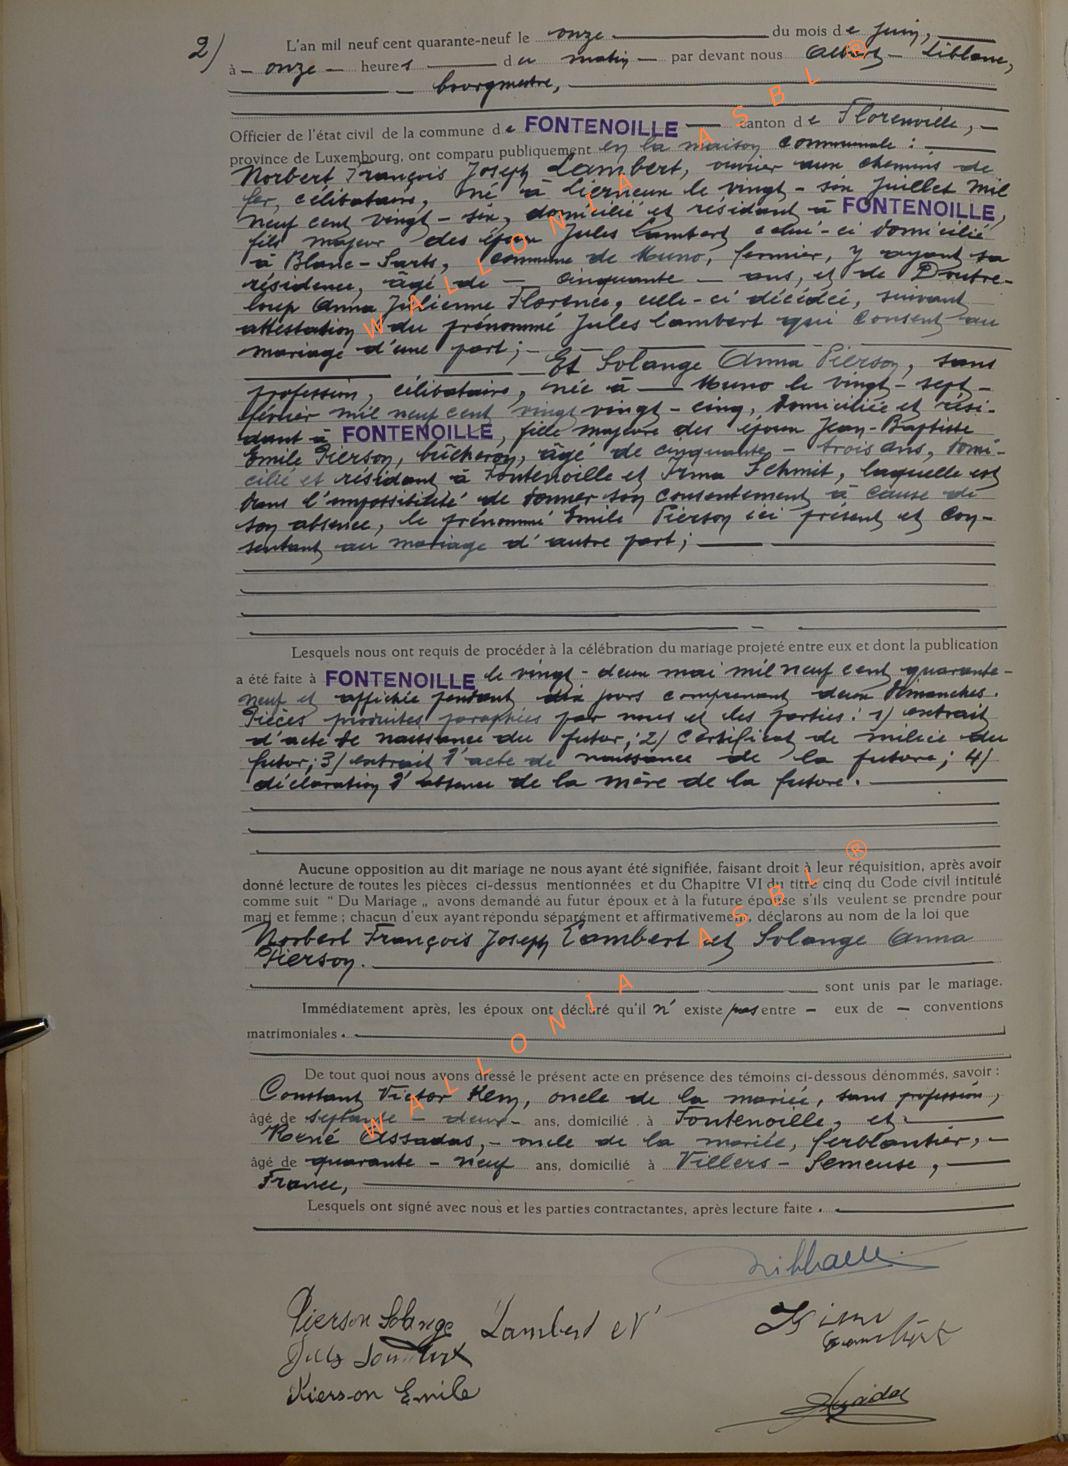 2) L'an mil neuf cent quarante-neuf le onze du mois de juin,
à - onze - heures du matin - par devant nous Albert - Liblanc,
bourgmestre,
Officier de l'état civil de la commune de FONTENOILLE canton de Florenville, -
province de Luxembourg, ont comparu publiquement en la maison communale :
Norbert François Joseph Lambert, ouvrier aux chemins de
fer, célibataire, né à Lierneux le vingt - six Juillet mil
neuf cent vingt - six, domicilié et résidant à FONTENOILLE,
fils majeur des époux Jules Lambert celui-ci domicilié
à Blanc-Sarts, commune de Muno, fermier, y ayant sa
résidence, âgé de - cinquante - ans, et de Doutre-
loup Anna Julienne Florence, celle-ci décédée, suivant
attestation du prénommé Jules Lambert qui consent au
mariage d'une part; - Et Solange Anna Pierson, sans
profession, célibataire, née à - Muno le vingt - sept -
février mil neuf cent vingt vingt - cinq, domiciliée et rési-
dant à FONTENOILLE, fille majeure des époux Jean-Baptiste
Emile Pierson, bûcheron, âgé de cinquante - trois ans, domi-
cilié et résidant à Fontenoille et Irma Schmit, laquelle est
dans l'impossibilité de donner son consentement à cause de
son absence, le prénommé Emile Pierson ici présent et con-
sentant au mariage d'autre part;
Lesquels nous ont requis de procéder à la célébration du mariage projeté entre eux et dont la publication
a été faite à FONTENOILLE le vingt - deux mai mil neuf cent quarante-
neuf et affichée pendant dix jours comprenant deux dimanches.
Pièces produites paraphées par nous et les parties : 1) extrait
d'acte de naissance du futur; 2) certificat de milice du
futur; 3) extrait d'acte de naissance de la future; 4)
déclaration d'absence de la mère de la future.
Aucune opposition au dit mariage ne nous ayant été signifiée, faisant droit à leur réquisition, après avoir
donné lecture de toutes les pièces ci-dessus mentionnées et du Chapitre VI du titre cinq du Code civil intitulé
comme suit " Du Mariage „ avons demandé au futur époux et à la future épouse s'ils veulent se prendre pour
mari et femme ; chacun d'eux ayant répondu séparément et affirmativement, déclarons au nom de la loi que
Norbert François Joseph Lambert et Solange Anna
Pierson.
sont unis par le mariage.
Immédiatement après, les époux ont déclaré qu'il n' existe pas entre - eux de - conventions
matrimoniales.
De tout quoi nous avons dressé le présent acte en présence des témoins ci-dessous dénommés, savoir :
Constant Victor, oncle de la mariée, sans profession,
âgé de septante - deux - ans, domicilié à Fontenoille, et -
René Assadas, - oncle de la mariée, ferblantier, -
âgé de quarante - neuf ans, domicilié à Villers - Semeuse,
France,
Lesquels ont signé avec nous et les parties contractantes, après lecture faite.
Pierson Solange Lambert N
Jules Lambert
Pierson Emile
WALLONIA ASBL ®
WALLONIA ASBL ®